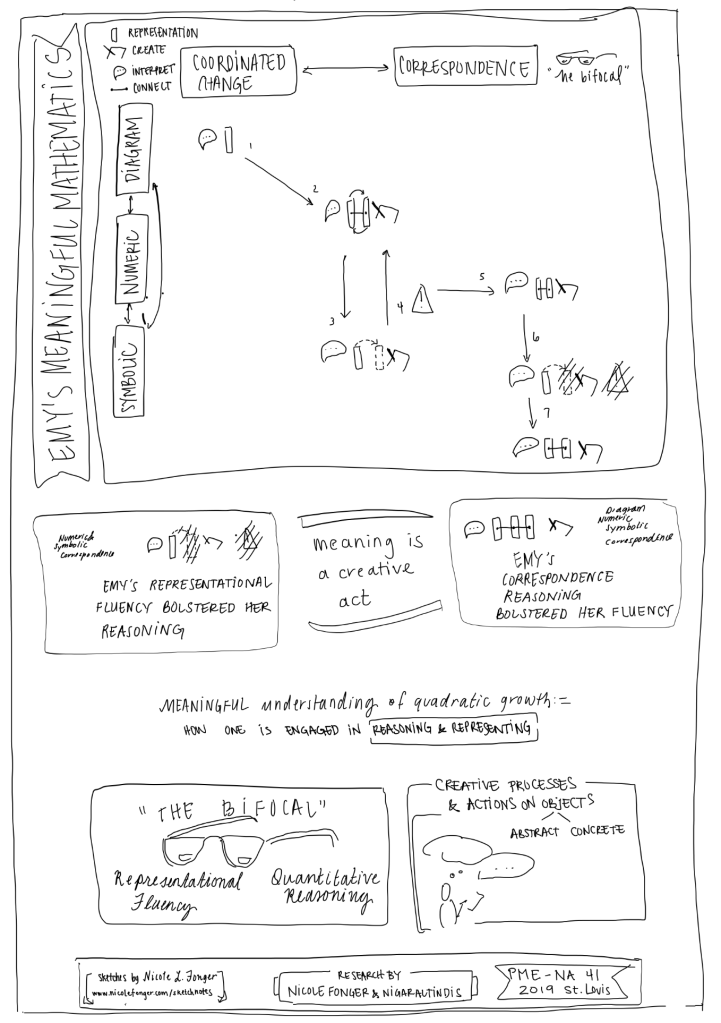 EMY'S MEANINGFUL MATHEMATICS
REPRESENTATION
CREATE
INTERPRET
CONNECT
COORDINATED
CHANGE
CORRESPONDENCE
"The bifocal"
DIAGRAM
NUMERIC
SYMBOLIC
1
2
3
4
!
5
6
7
Numeric &
Symbolic
Correspondence
EMY'S REPRESENTATIONAL
FLUENCY BOLSTERED HER
REASONING
meaning is
a creative
act
Diagram
Numeric
Symbolic
Correspondence
EMY'S
CORRESPONDENCE
REASONING
BOLSTERED HER FLUENCY
MEANINGFUL understanding of quadratic growth:=
HOW ONE IS ENGAGED IN REASONING & REPRESENTING
"THE BIFOCAL"
Representational
Fluency
Quantitative
Reasoning
CREATIVE PROCESSES
& ACTIONS ON OBJECTS
ABSTRACT CONCRETE
...
Sketches by Nicole L. Fonger
www.nicolefonger.com/sketchnotes
RESEARCH BY
NICOLE FONGER & NIGAR ALTINDIS
PME-NA 41
2019 St. Louis